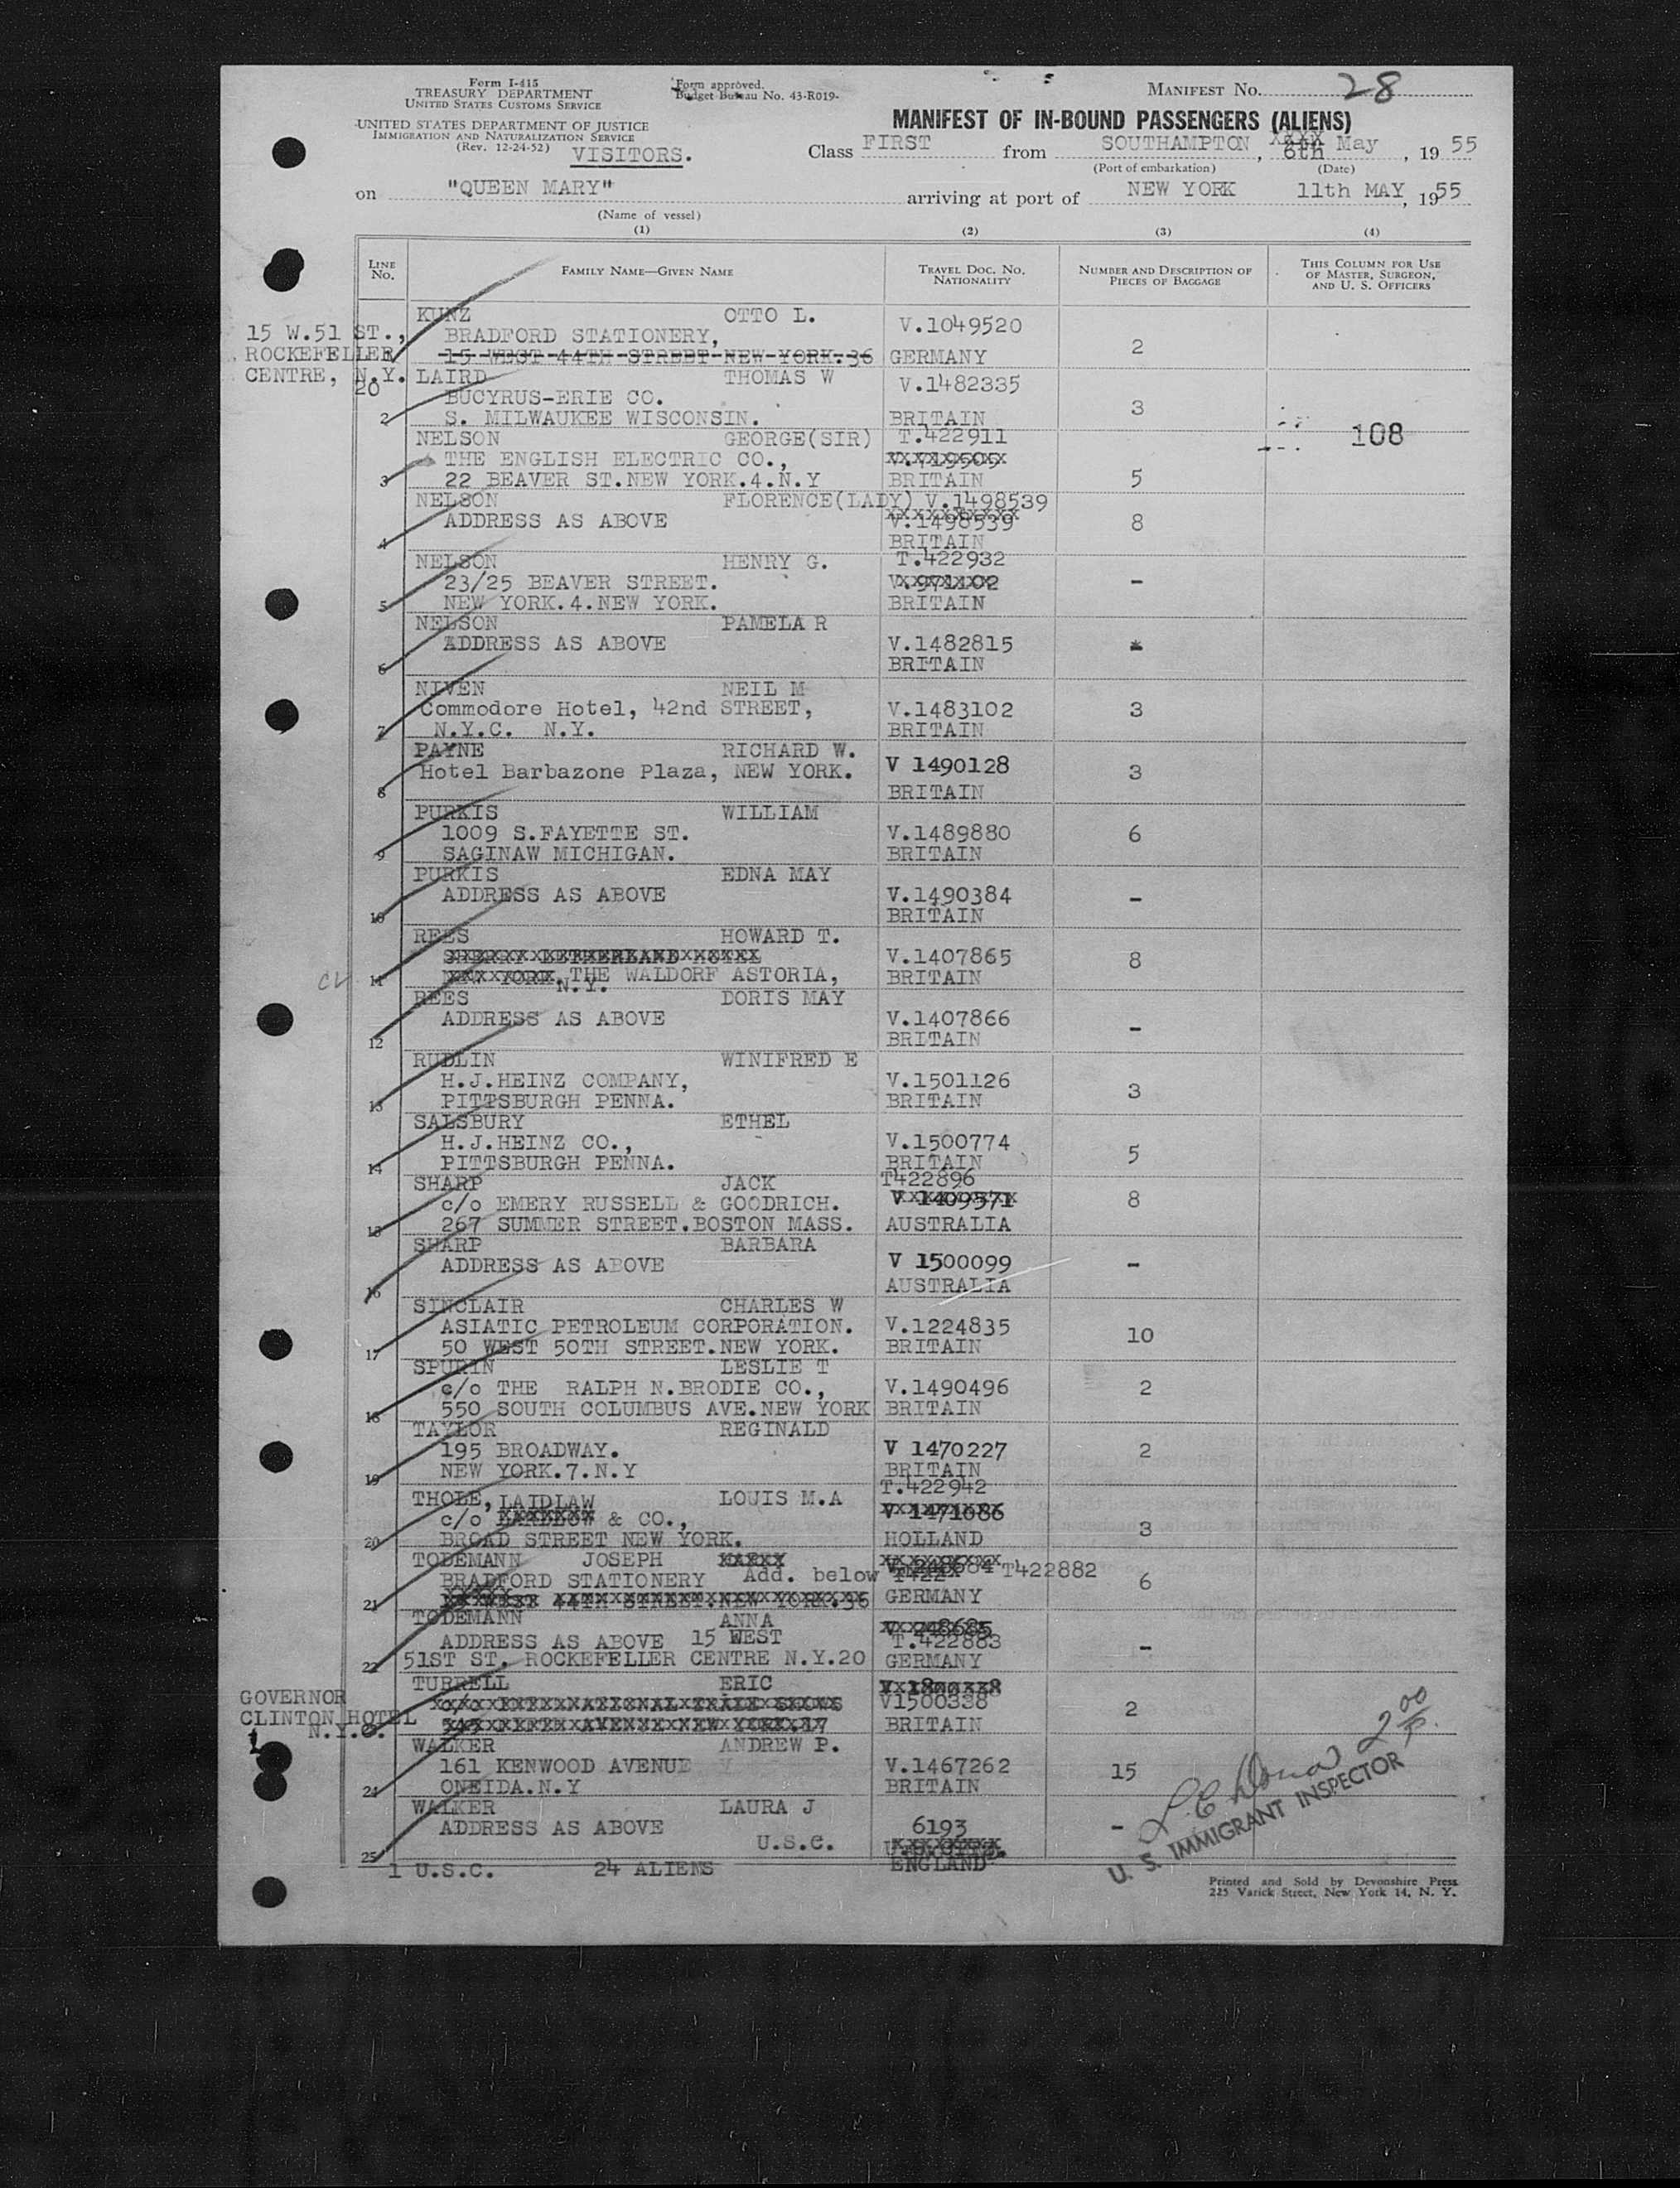 Form I-415
TREASURY DEPARTMENT
UNITED STATES CUSTOMS SERVICE
Form approved.
Budget Bureau No. 43-R019-
MANIFEST NO. 28
UNITED STATES DEPARTMENT OF JUSTICE
IMMIGRATION AND NATURALIZATION SERVICE
(Rev. 12-24-52) VISITORS.
MANIFEST OF IN-BOUND PASSENGERS (ALIENS)
Class FIRST from SOUTHAMPTON, 6th May, 19 55
(Port of embarkation) (Date)
on "QUEEN MARY" arriving at port of NEW YORK 11th MAY, 1955
(Name of vessel)
(1) (2) (3) (4)
LINE NO. FAMILY NAME—GIVEN NAME TRAVEL DOC. NO. NATIONALITY NUMBER AND DESCRIPTION OF PIECES OF BAGGAGE THIS COLUMN FOR USE OF MASTER, SURGEON, AND U. S. OFFICERS
KUNZ OTTO L. V.1049520
15 W.51 ST., BRADFORD STATIONERY, 2
ROCKEFELLER 15 WEST 44TH STREET NEW YORK.36 GERMANY
CENTRE, N.Y. 20
LAIRD THOMAS W V.1482335
BUCYRUS-ERIE CO. 3
2 S. MILWAUKEE WISCONSIN. BRITAIN
108
NELSON GEORGE(SIR) T.422911
THE ENGLISH ELECTRIC CO., V.719505
3 22 BEAVER ST.NEW YORK.4.N.Y BRITAIN 5
NELSON FLORENCE(LADY) V.1498539
ADDRESS AS ABOVE V.1498539 8
4 BRITAIN
NELSON HENRY G. T.422932
23/25 BEAVER STREET. V.971102 -
5 NEW YORK.4.NEW YORK. BRITAIN
NELSON PAMELA R
ADDRESS AS ABOVE V.1482815
6 BRITAIN
NIVEN NEIL M
Commodore Hotel, 42nd STREET, V.1483102 3
7 N.Y.C. N.Y. BRITAIN
PAYNE RICHARD W. V 1490128
Hotel Barbazone Plaza, NEW YORK. 3
8 BRITAIN
PURKIS WILLIAM
1009 S.FAYETTE ST. V.1489880 6
9 SAGINAW MICHIGAN. BRITAIN
PURKIS EDNA MAY
ADDRESS AS ABOVE V.1490384 -
10 BRITAIN
REES HOWARD T.
V.1407865 8
11 THE WALDORF ASTORIA, BRITAIN
N.Y.
REES DORIS MAY
ADDRESS AS ABOVE V.1407866 -
12 BRITAIN
RUDLIN WINIFRED E
H.J.HEINZ COMPANY, V.1501126 3
13 PITTSBURGH PENNA. BRITAIN
SALSBURY ETHEL
H.J.HEINZ CO., V.1500774 5
14 PITTSBURGH PENNA. BRITAIN
SHARP JACK T422896
c/o EMERY RUSSELL & GOODRICH. V 1409571 8
15 267 SUMMER STREET.BOSTON MASS. AUSTRALIA
SHARP BARBARA
ADDRESS AS ABOVE V 1500099 -
16 AUSTRALIA
SINCLAIR CHARLES W
ASIATIC PETROLEUM CORPORATION. V.1224835 10
17 50 WEST 50TH STREET.NEW YORK. BRITAIN
SPURIN LESLIE T
c/o THE RALPH N.BRODIE CO., V.1490496 2
18 550 SOUTH COLUMBUS AVE.NEW YORK BRITAIN
TAYLOR REGINALD
195 BROADWAY. V 1470227 2
19 NEW YORK.7.N.Y BRITAIN
THOLE, LOUIS M.A T.422942
c/o LAIDLAW & CO., V 1471086
20 BROAD STREET NEW YORK. HOLLAND 3
TODEMANN JOSEPH
BRADFORD STATIONERY Add. below T422882 6
21 44TH STREET.NEW YORK.36 GERMANY
TODEMANN ANNA V 248685
ADDRESS AS ABOVE 15 WEST T.422883 -
22 51ST ST. ROCKEFELLER CENTRE N.Y.20 GERMANY
TURRELL ERIC
GOVERNOR V1500338 2
CLINTON HOTEL BRITAIN
N.Y.C.
WALKER ANDREW P.
161 KENWOOD AVENUE V.1467262 15
24 ONEIDA.N.Y BRITAIN
WALKER LAURA J
ADDRESS AS ABOVE 6193 -
U.S.C.
25 ENGLAND
1 U.S.C. 24 ALIENS
U. S. IMMIGRANT INSPECTOR
Printed and Sold by Devonshire Press
225 Varick Street, New York 14, N. Y.